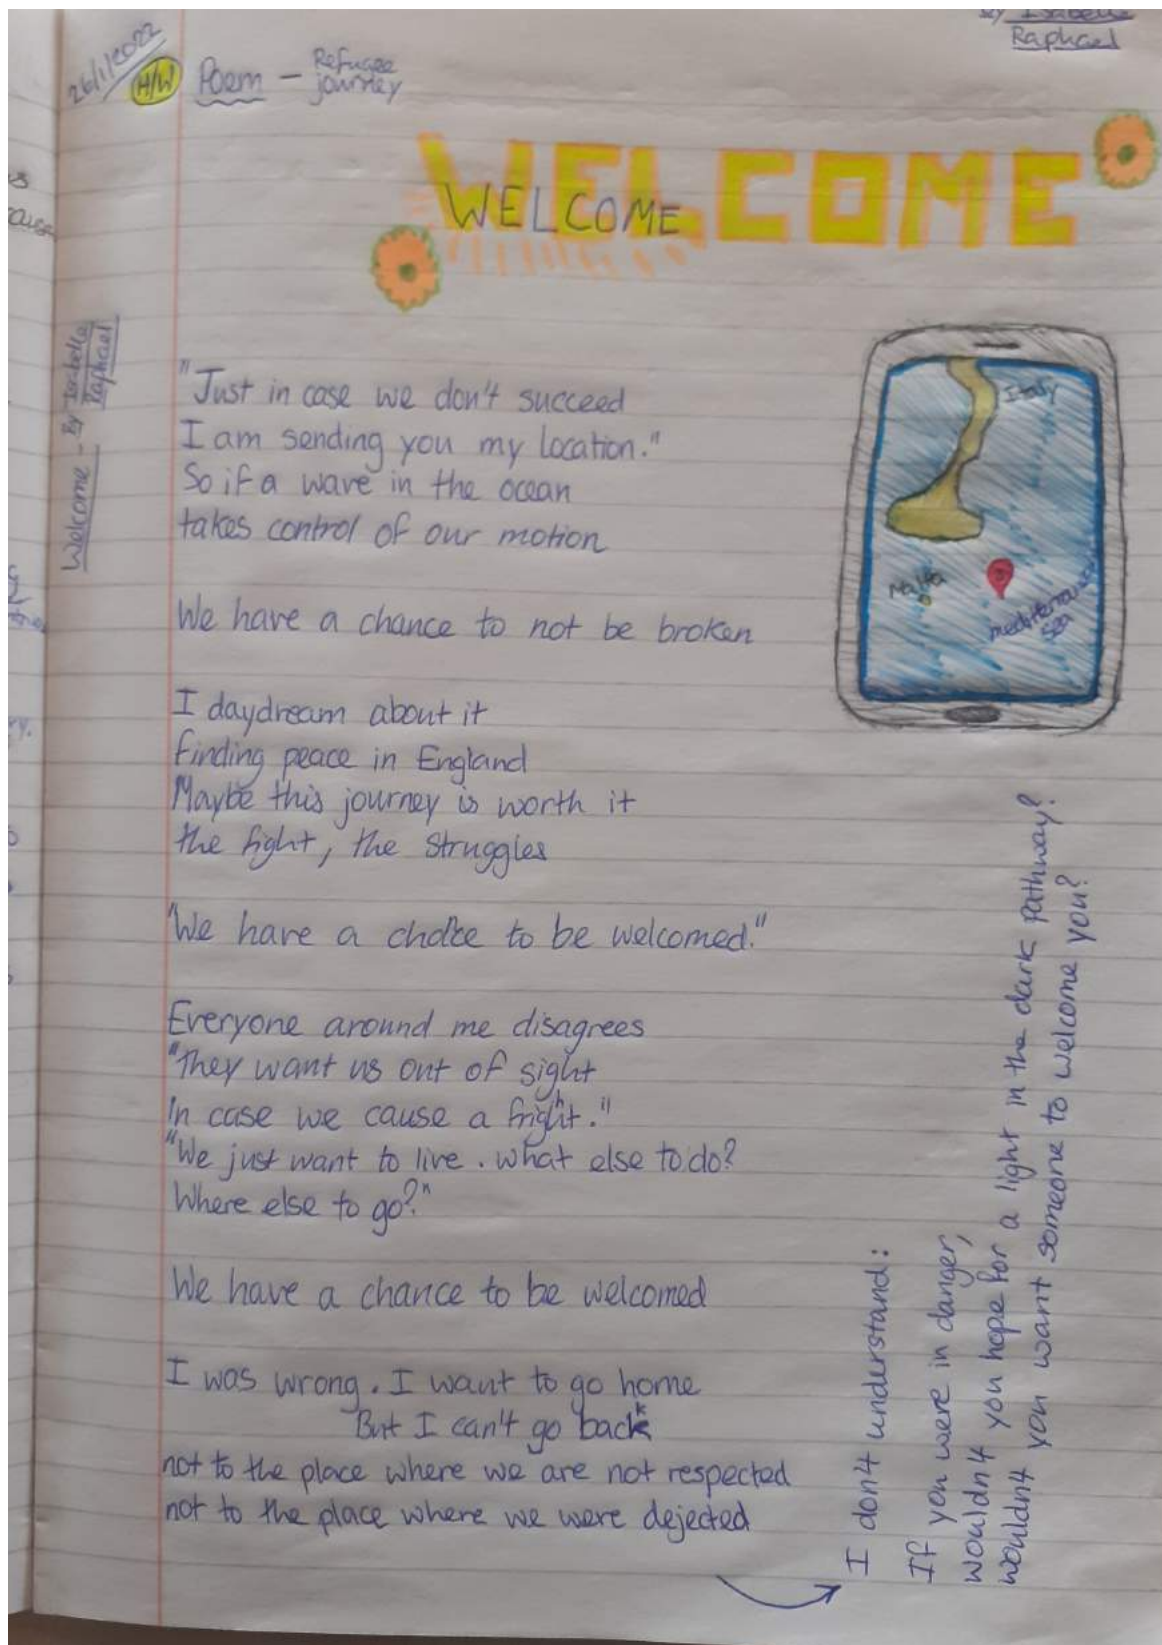 By Isabelle
Raphael
26/1/2022
H/W Poem - Refugee
journey
WELCOME
WELCOME
Welcome - By Isabelle
Raphael
"Just in case we don't succeed
I am sending you my location."
So if a wave in the ocean
takes control of our motion
We have a chance to not be broken
I daydream about it
finding peace in England
Maybe this journey is worth it
the fight, the struggles
"We have a choice to be welcomed."
Everyone around me disagrees
"They want us out of sight
In case we cause a fright."
"We just want to live. what else to do?
Where else to go?"
We have a chance to be welcomed
I was wrong. I want to go home
But I can't go back
not to the place where we are not respected
not to the place where we were dejected
I don't understand:
If you were in danger,
wouldn't you hope for a light in the dark pathway?
wouldn't you want someone to welcome you?
Italy
Malta
mediterranean
sea